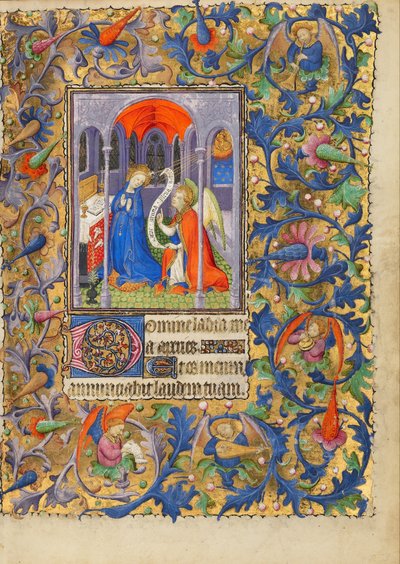 Domine labia me
a aperies
Et os meum
annunciabit laudem tuam